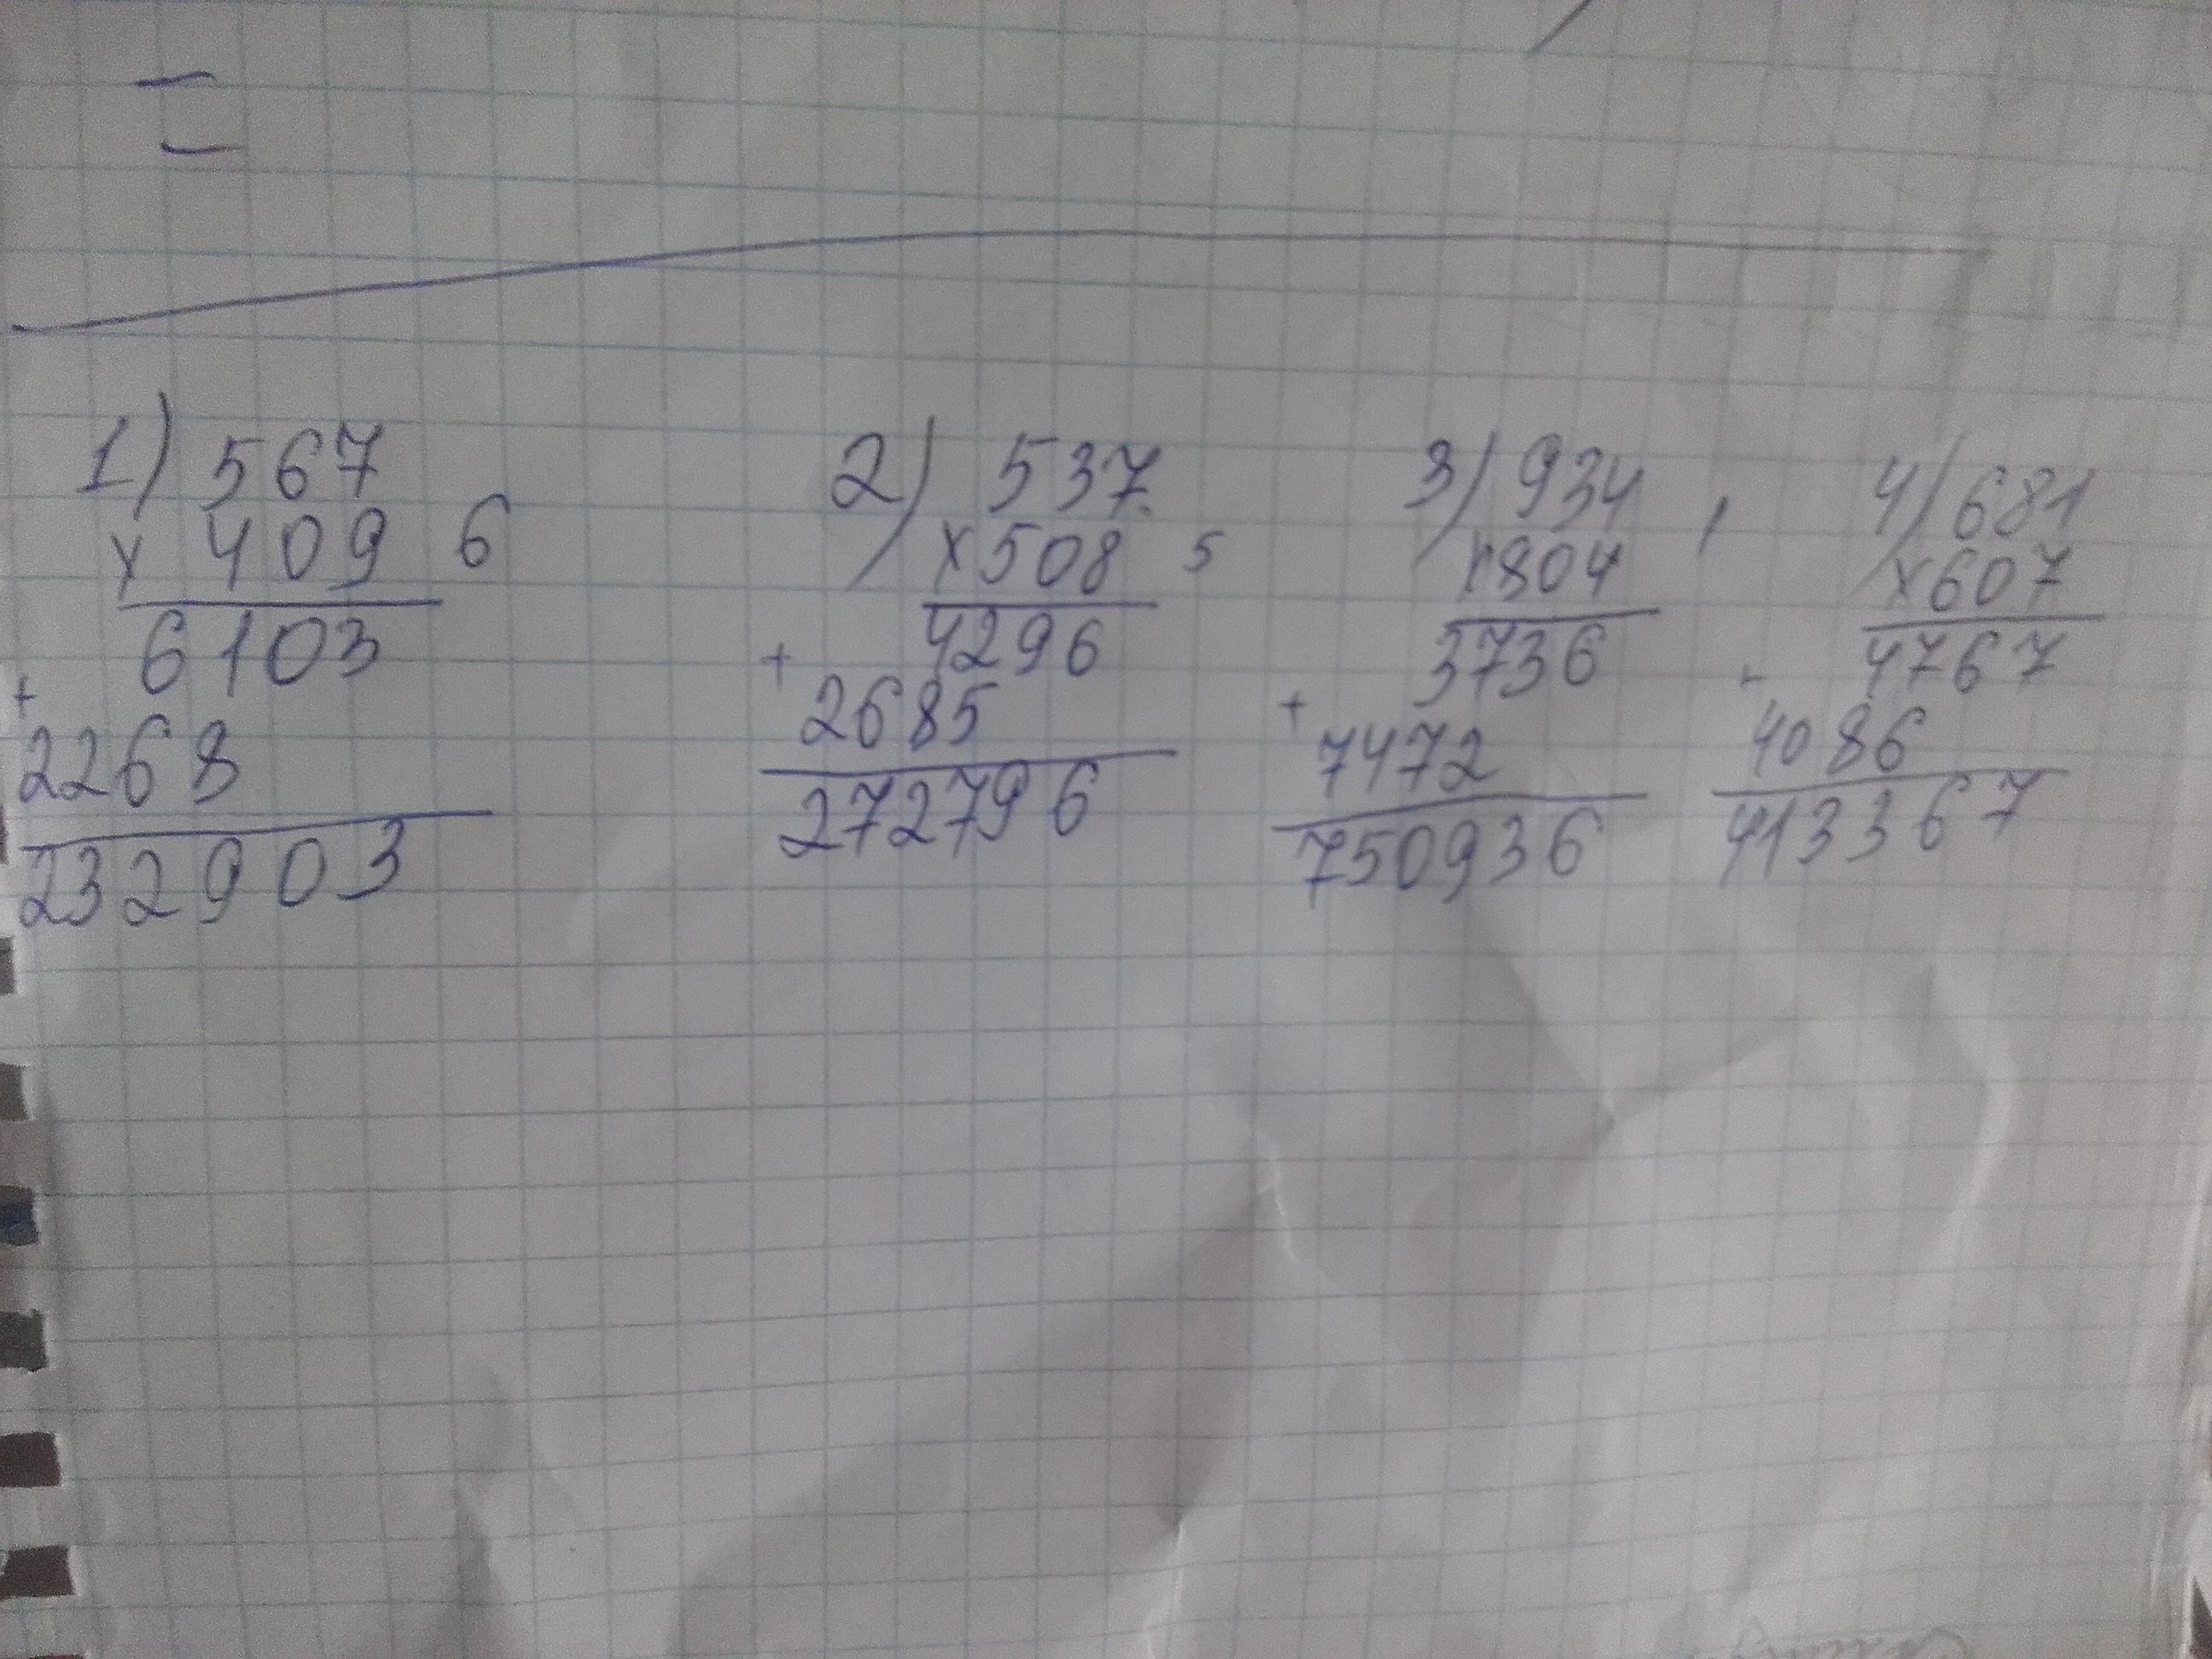 1) 567
× 409 6
6103
+
2268
232903
2) 537
×508 5
4296
+
2685
272796
3) 934
×804
3736
+
7472
750936
4) 681
×607
4767
-
4086
413367